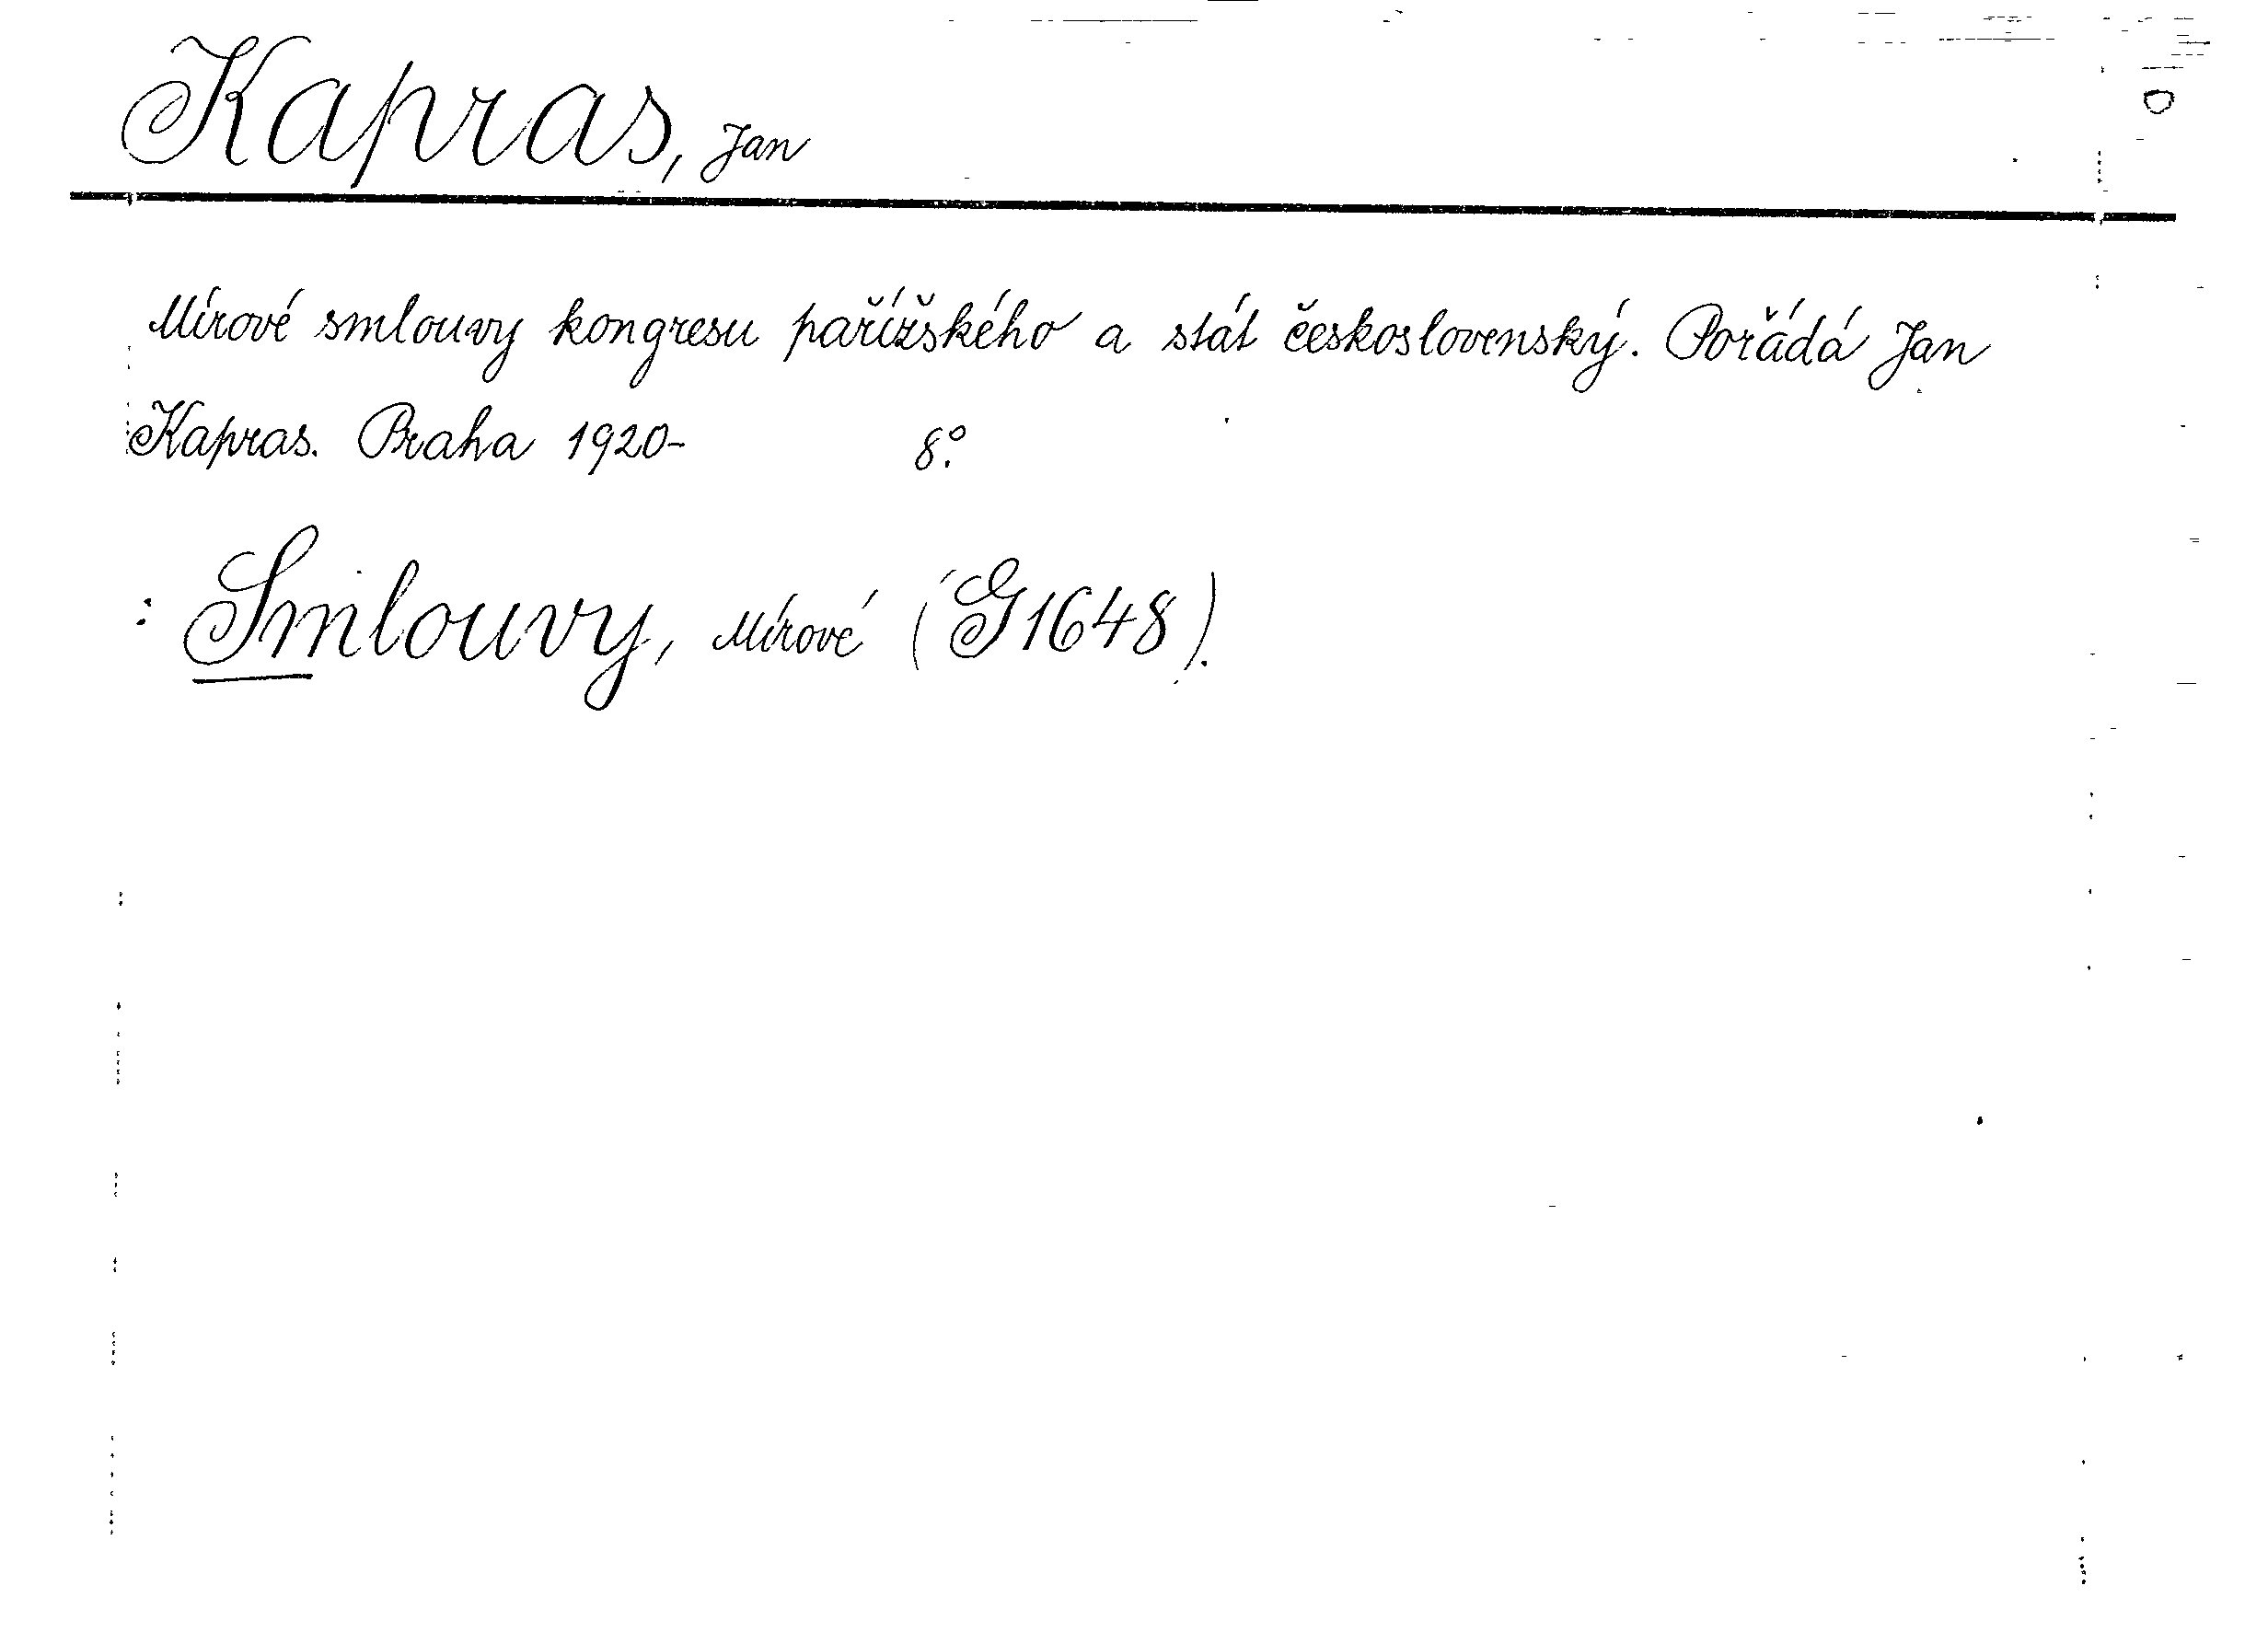 Kapras, Jan
Mírové smlouvy kongresu pařížského a stát československý. Pořádá Jan
Kapras. Praha 1920- 8º.
: Smlouvy, Mírové (G1648).